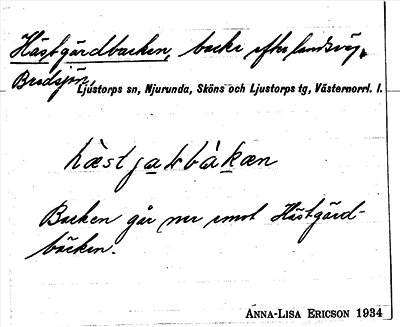 Hästgärdbacken, backe efter landsväg,
Bredsjön,
Ljustorps sn, Njurunda, Sköns och Ljustorps tg, Västernorrl. l.
hæstjabbàkæn
Backen går ner emot Hästgärd-
bäcken.
ANNA-LISA ERICSON 1934